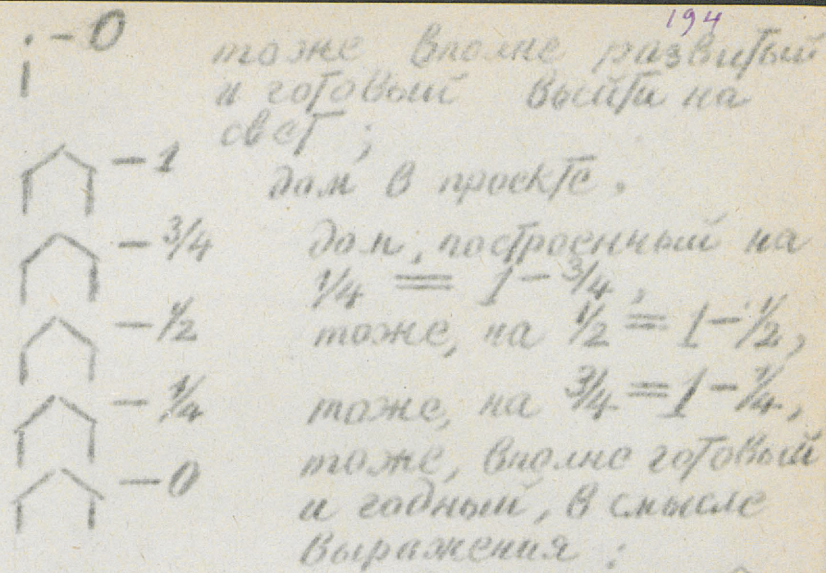 194
i - 0 тоже вполне развитый
и готовый выйти на
свет;
- 1 дом в проекте,
- 3/4 дом, построенный на
1/4 = 1 - 3/4,
- 1/2 тоже, на 1/2 = 1 - 1/2,
- 1/4 тоже, на 3/4 = 1 - 1/4,
- 0 тоже, вполне готовый
и годный, в смысле
выражения;